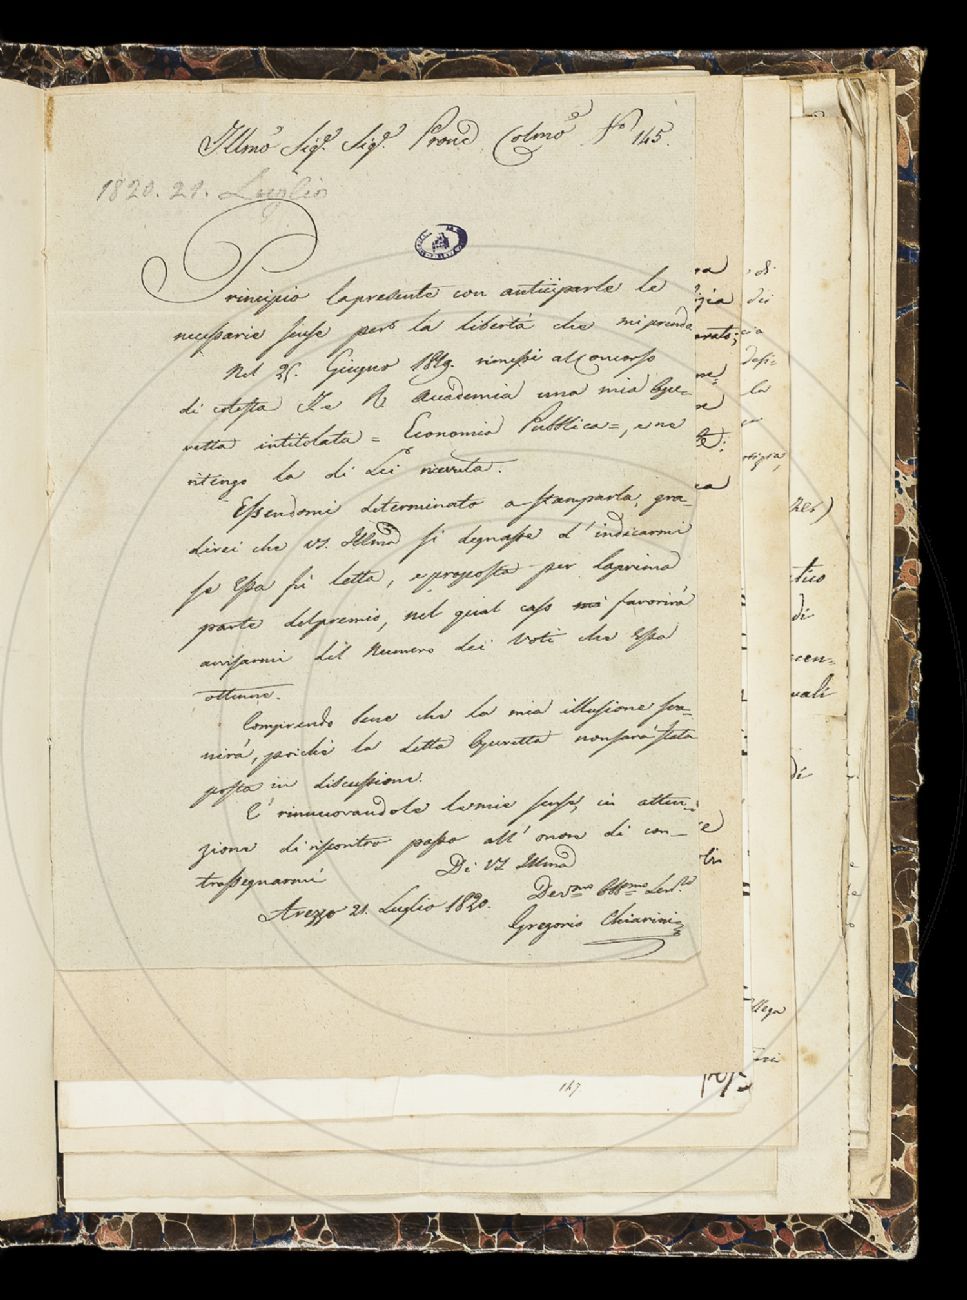 Illmo Sigr. Sigr. Prone Colmo No 145.
1820. 21. Luglio
Principio lapresente con anticiparle le
necessarie scuse per la libertà che mi prendo
Nel 25. Giugno 1819. rimessi al Concorso
di cotesta I. e R. Accademia una mia Oper-
retta intitolata = Economia Pubblica =, e ne
ritengo la di Lei ricevuta.
Essendomi determinato a stamparla, gra-
direi che VS. Illma si degnasse d'indicarmi
se Essa fù letta, e proposta per laprima
parte delpremio, nel qual caso mi favorirà
avvisarmi del Numero dei Voti che Essa
ottenne.
Comprendo bene che la mia illusione sva-
nirà, poiché la detta Operetta nonsarà stata
posta in discussione.
E rinnuovandole lemie scuse, in atten-
zione di riscontro passo all'onore di con-
trassegnarmi
Di VS Illma
Arezzo 21. Luglio 1820.
Devmo Obbmo Servre
Gregorio Chiarini
147